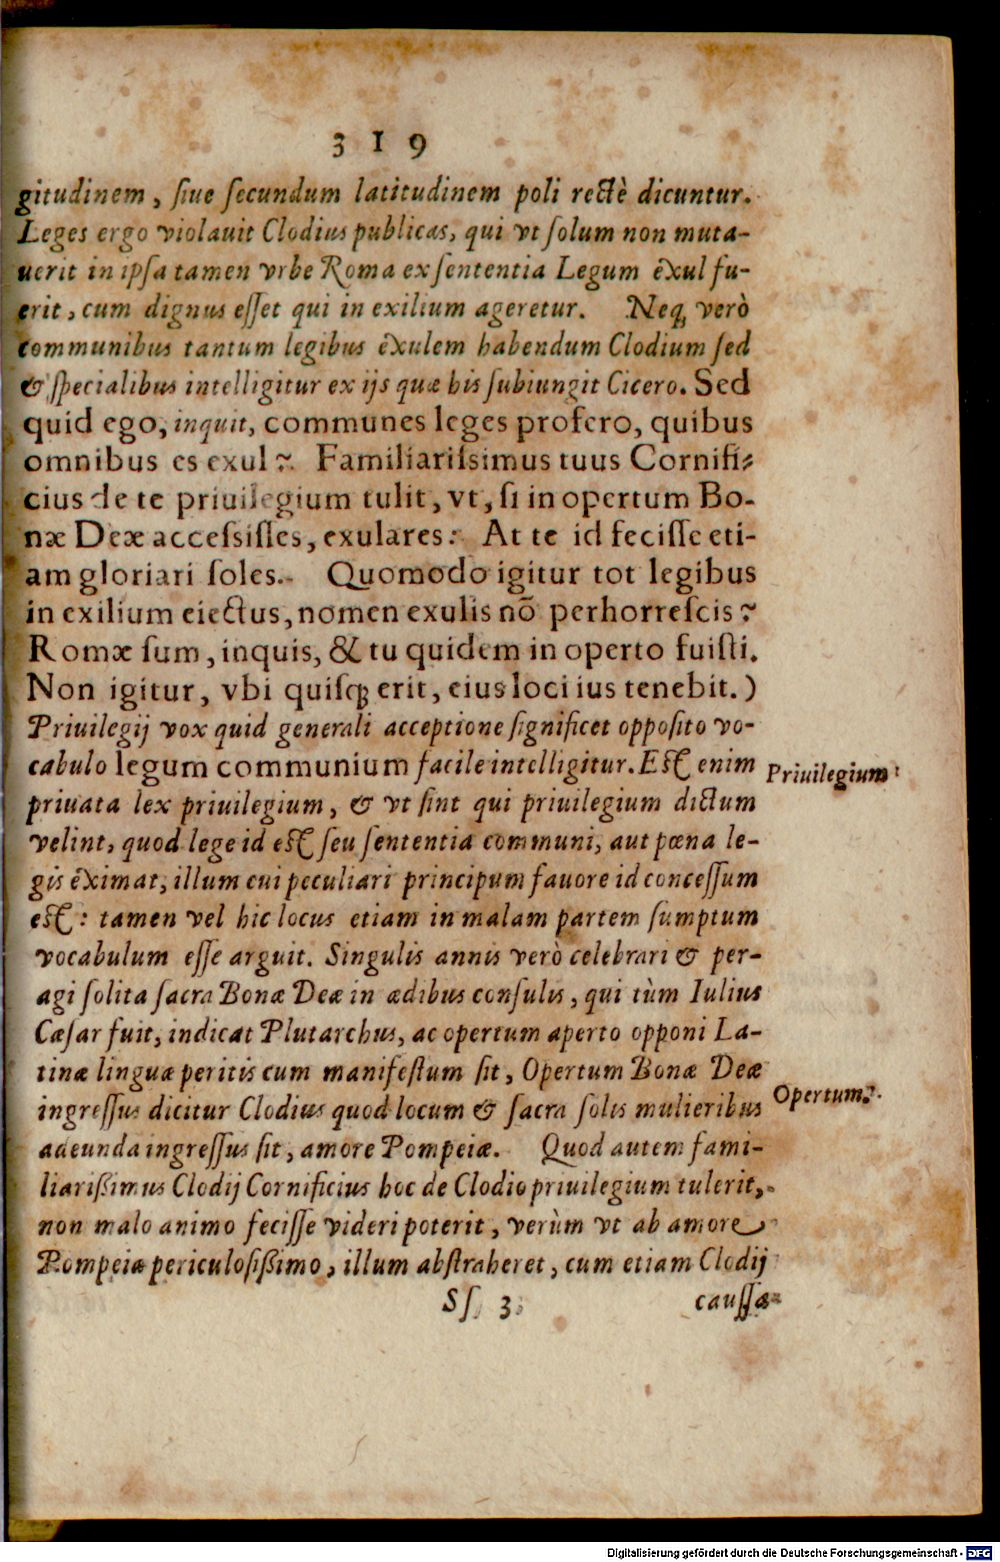 3 1 9
gitudinem, ſiue ſecundum latitudinem poli rectè dicuntur.
Leges ergo violauit Clodius publicas, qui vt ſolum non muta-
uerit in ipſa tamen vrbe Roma ex ſententia Legum éxul fu-
erit, cum dignus eſſet qui in exilium ageretur. Neq; verò
communibus tantum legibus éxulem habendum Clodium ſed
& ſpecialibus intelligitur ex ijs quæ his ſubiungit Cicero. Sed
quid ego, inquit, communes leges profero, quibus
omnibus es exul? Familiariſsimus tuus Cornifi-
cius de te priuilegium tulit, vt, ſi in opertum Bo-
næ Deæ acceſsiſſes, exulares: At te id feciſſe eti-
am gloriari ſoles. Quomodo igitur tot legibus
in exilium eiectus, nomen exulis nō perhorreſcis?
Romæ ſum, inquis, & tu quidem in operto fuiſti.
Non igitur, vbi quiſq; erit, eius loci ius tenebit.)
Priuilegij vox quid generali acceptione ſignificet oppoſito vo-
cabulo legum communium facile intelligitur. Eſt enim
priuata lex priuilegium, & vt ſint qui priuilegium dictum
velint, quod lege id eſt ſeu ſententia communi, aut pœna le-
gis éximat, illum cui peculiari principum fauore id conceſſum
eſt: tamen vel hic locus etiam in malam partem ſumptum
vocabulum eſſe arguit. Singulis annis verò celebrari & per-
agi ſolita ſacra Bonæ Deæ in ædibus conſulis, qui tùm Iulius
Cæſar fuit, indicat Plutarchus, ac opertum aperto opponi La-
tinæ linguæ peritis cum manifeſtum ſit, Opertum Bonæ Deæ
ingreſſus dicitur Clodius quod locum & ſacra ſolis mulieribus
adeunda ingreſſus ſit, amore Pompeiæ. Quod autem fami-
liarißimus Clodij Cornificius hoc de Clodio priuilegium tulerit,
non malo animo feciſſe videri poterit, verùm vt ab amore
Pompeiæ periculoſißimo, illum abſtraheret, cum etiam Clodij
Sſ 3
cauſſa
Priuilegium
Opertum.
Digitalisierung gefördert durch die Deutsche Forschungsgemeinschaft - DFG